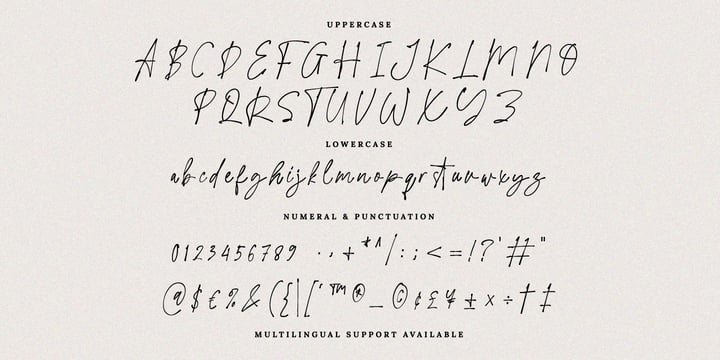 UPPERCASE
ABCDEFGHIJKLMNO
PQRSTUVWXYZ
LOWERCASE
abcdefghijklmnopqrstuvwxyz
NUMERAL & PUNCTUATION
0123456789 ., + * ^ / : ; < = ! ? ' # "
@ $ € % & ( { | [ ' ™ ® _ © ¢ £ ¥ ± × ÷ † ‡
MULTILINGUAL SUPPORT AVAILABLE